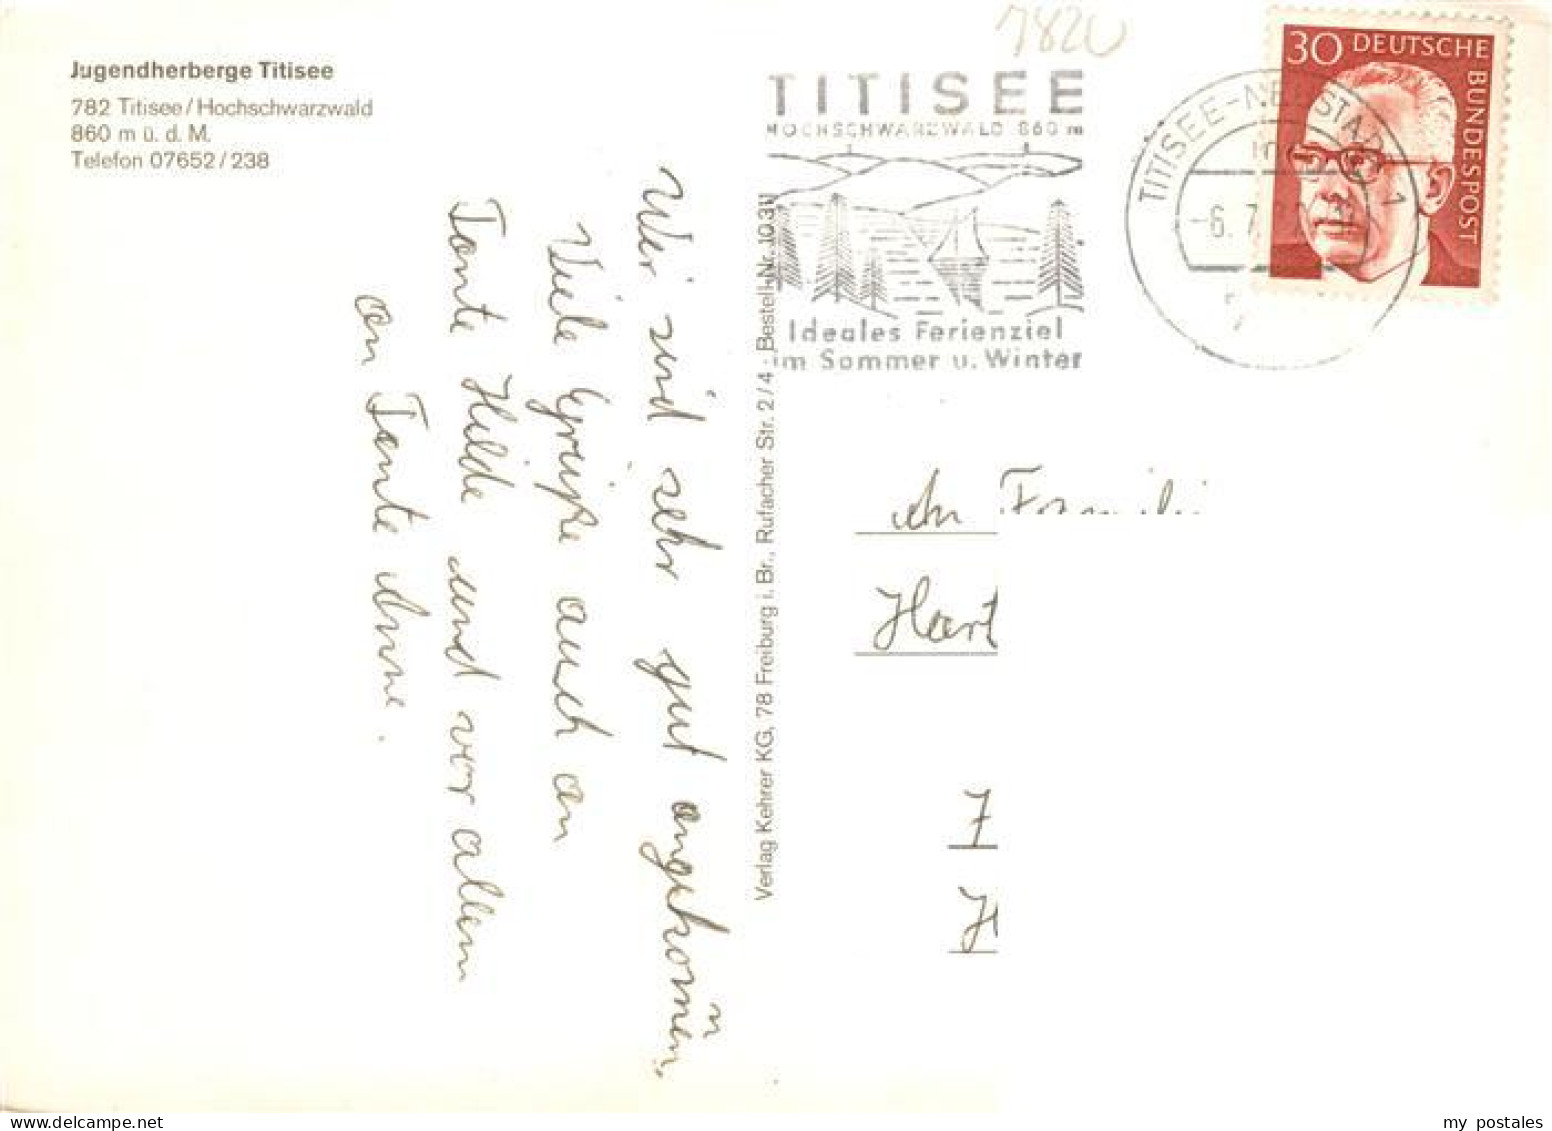 Jugendherberge Titisee
782 Titisee/Hochschwarzwald
860 m ü. d. M.
Telefon 07652/238
7820
TITISEE
HOCHSCHWARZWALD 860 m
Ideales Ferienziel
im Sommer u. Winter
TITISEE-NEUSTADT 1
-6. 7.
30 DEUTSCHE BUNDESPOST
Wir sind sehr gut angekom̄en.
Viele Grüße auch an
Tante Hilde und vor allem
an Tante Anne.
Verlag Kehrer KG, 78 Freiburg i. Br., Rufacher Str. 2/4 · Bestell-Nr. 10 311
An Famili
Hart
7
H
my postales